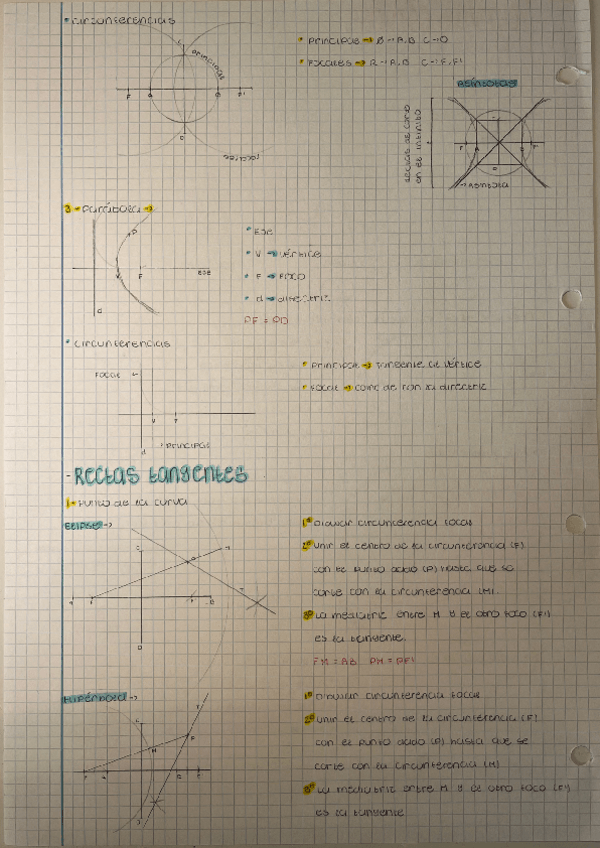 • circunferencias
PRINCIPAL
F A B F'
FOCALES
• PRINCIPAL → Ø → A,B C → O
• FOCALES → R → A,B C → F, F'
ASÍNTOTAS
RECTAS DE CORTE
EN EL INFINITO
→ ASÍNTOTA
3 - Parábola →
P
V F EJE
d
• EJE
• V → VÉRTICE
• F → FOCO
• d → directriz
PF = PD
• circunferencias
FOCAL
V F
PRINCIPAL
d
• PRINCIPAL → tangente al vértice
• FOCAL → coincide con la directriz
- RECTAS tangentes
1 - Punto de la curva
ELIPSE →
1º Dibujar circunferencia focal
2º unir el centro de la circunferencia (F)
con el punto dado (P) hasta que se
corte con la circunferencia (M).
3º La mediatriz entre M y el otro foco (F')
es la tangente.
FM = AB PM = PF'
HIPÉRBOLA →
1º Dibujar circunferencia focal
2º unir el centro de la circunferencia (F)
con el punto dado (P) hasta que se
corte con la circunferencia (M)
3º La mediatriz entre M y el otro foco (F')
es la tangente